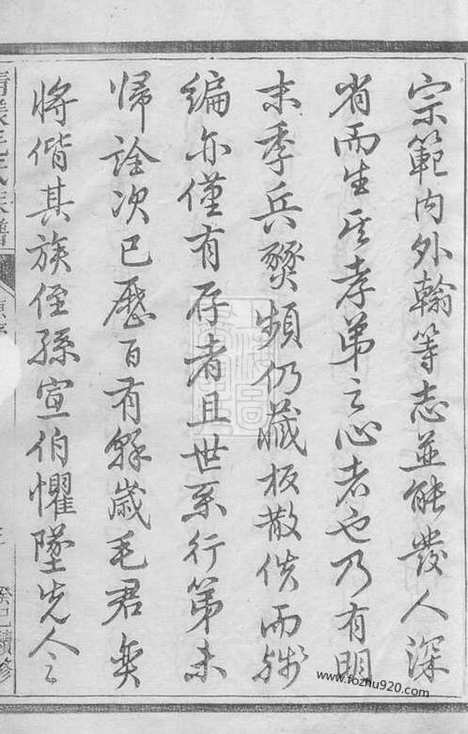 宗範内外翰等志並能發人深
省而生其孝弟之心者也乃有明
末季兵燹頻仍藏板散佚而殘
編亦僅有存者且世系行第未
歸詮次已歷百有餘歲毛君奐
將偕其族侄孫宣伯懼墜先人之
癸巳續修
www.fozhu920.com